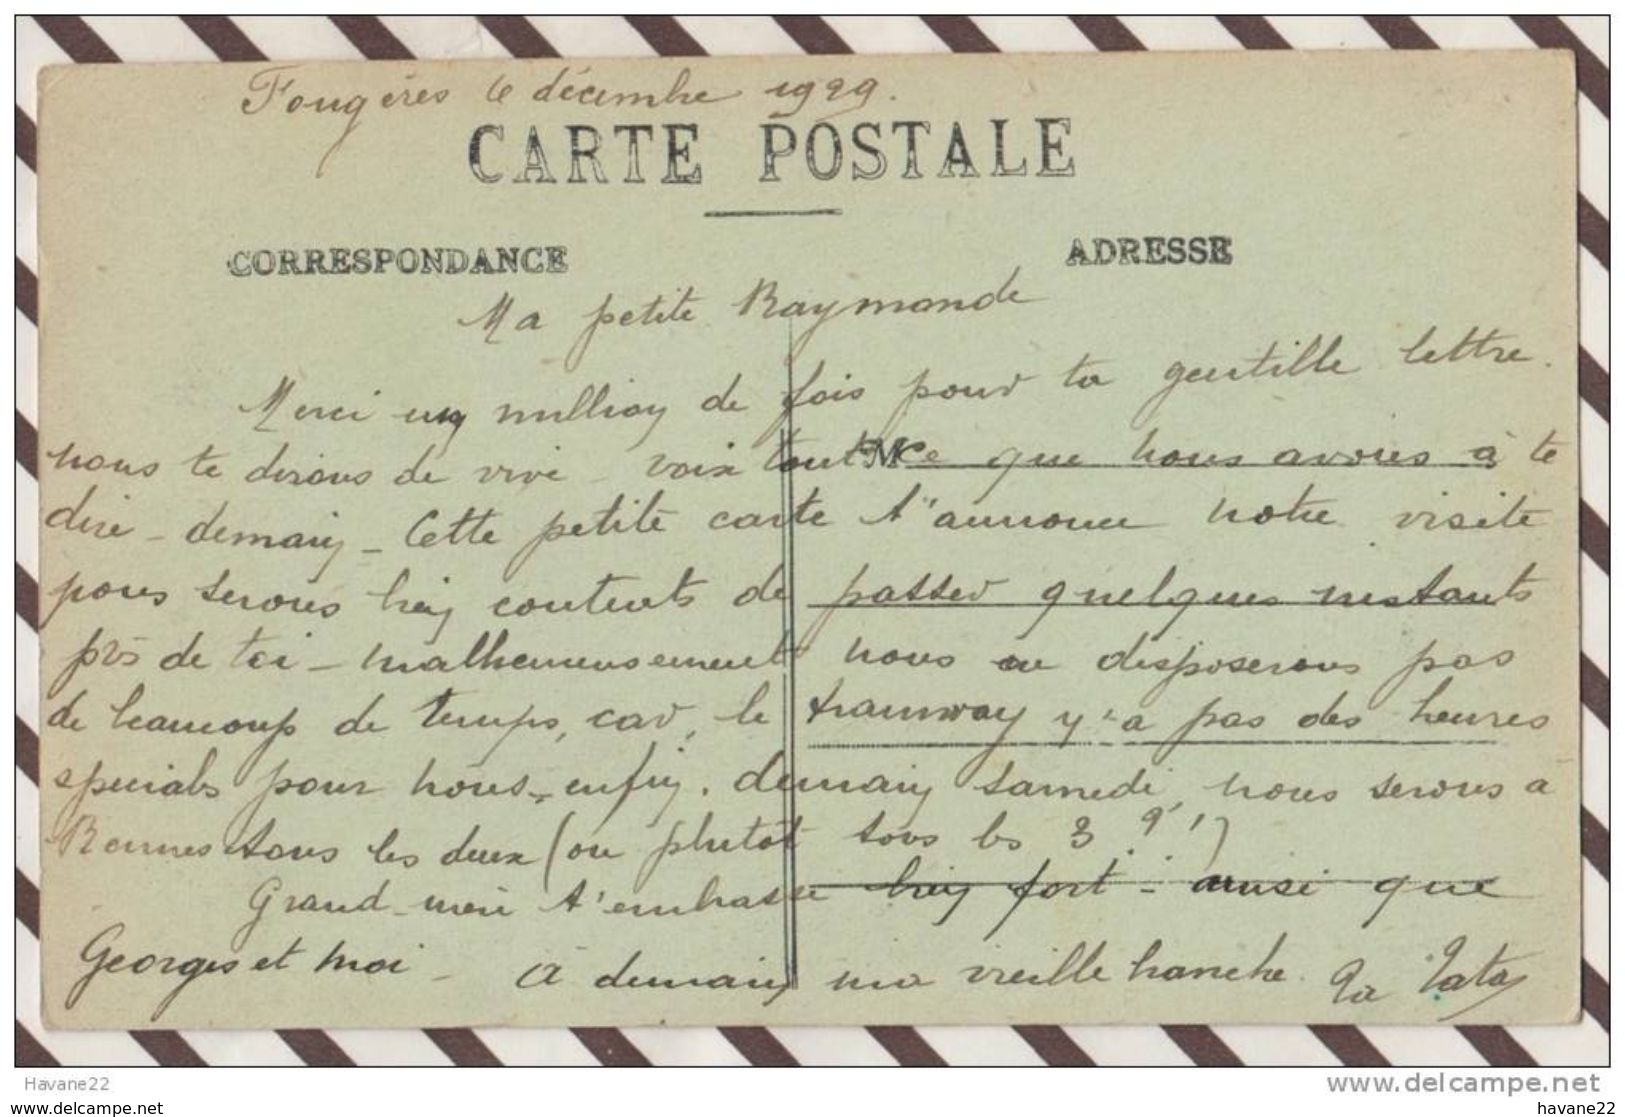 Fougères 6 décembre 1929.
CARTE POSTALE
CORRESPONDANCE
ADRESSE
Ma petite Raymonde
Merci un million de fois pour ta gentille lettre.
nous te dirons de vive voix tout ce que nous avons à te
dire - demain - Cette petite carte t'annonce notre visite
nous serons bien contents de passer quelques instants
près de toi - malheureusement nous ne disposerons pas
de beaucoup de temps, car, le tramway n'a pas des heures
spéciales pour nous - enfin, demain samedi, nous serons à
Rennes tous les deux (ou plutôt tous les 3 ?!)
Grand-mère t'embrasse bien fort - ainsi que
Georges et moi - à demain ma vieille branche. Ta Tata
Havane22
www.delcampe.net
posterlounge.com
havane22